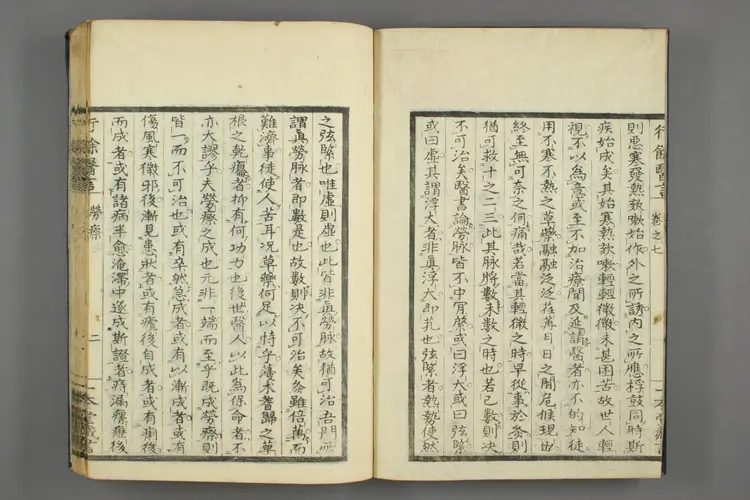 行餘醫言 卷之七
則惡寒發熱欬嗽始作外之所誘內之所應桴鼓同時斯
疾始成矣其始寒熱欬嗽輕輕微微未甚困苦故世人輕
視不以爲意或至不加治療閒及延請醫者亦不的知徒
用不寒不熱之草藥融融泛泛在苒月日之閒危候現出
終至無可奈之何痛哉若當其輕微之時早從事於灸則
猶可救十之二三此其脉將數未數之時也若已數則決
不可治矣醫書論勞脉皆不中肎綮或曰浮大或曰弦緊
或曰虛其謂浮大者非眞浮大即芤也弦緊者熱勢使然
之弦緊也唯虛則虛也此皆非眞勞脉故猶可治吾門所
謂眞勞脉者即數是也故數則決不可治矣灸雖倍萬而
難濟事徒使人苦耳况草藥何足以恃乎薳木耆歸之草
根之乾癟者抑有何功力也後世醫人以此為保命者不
亦大謬乎夫勞瘵之成也元非一端而至乎既成勞瘵則
皆一而不可治也或有卒然急成者或有以漸成者或有
傷風寒微邪後漸見患狀者或有瘧後自成者或有痢後
而成者或有諸病半愈淹滯中遂成斯證者痔漏瘰癧後
行餘醫言 勞瘵 二 一本堂藏